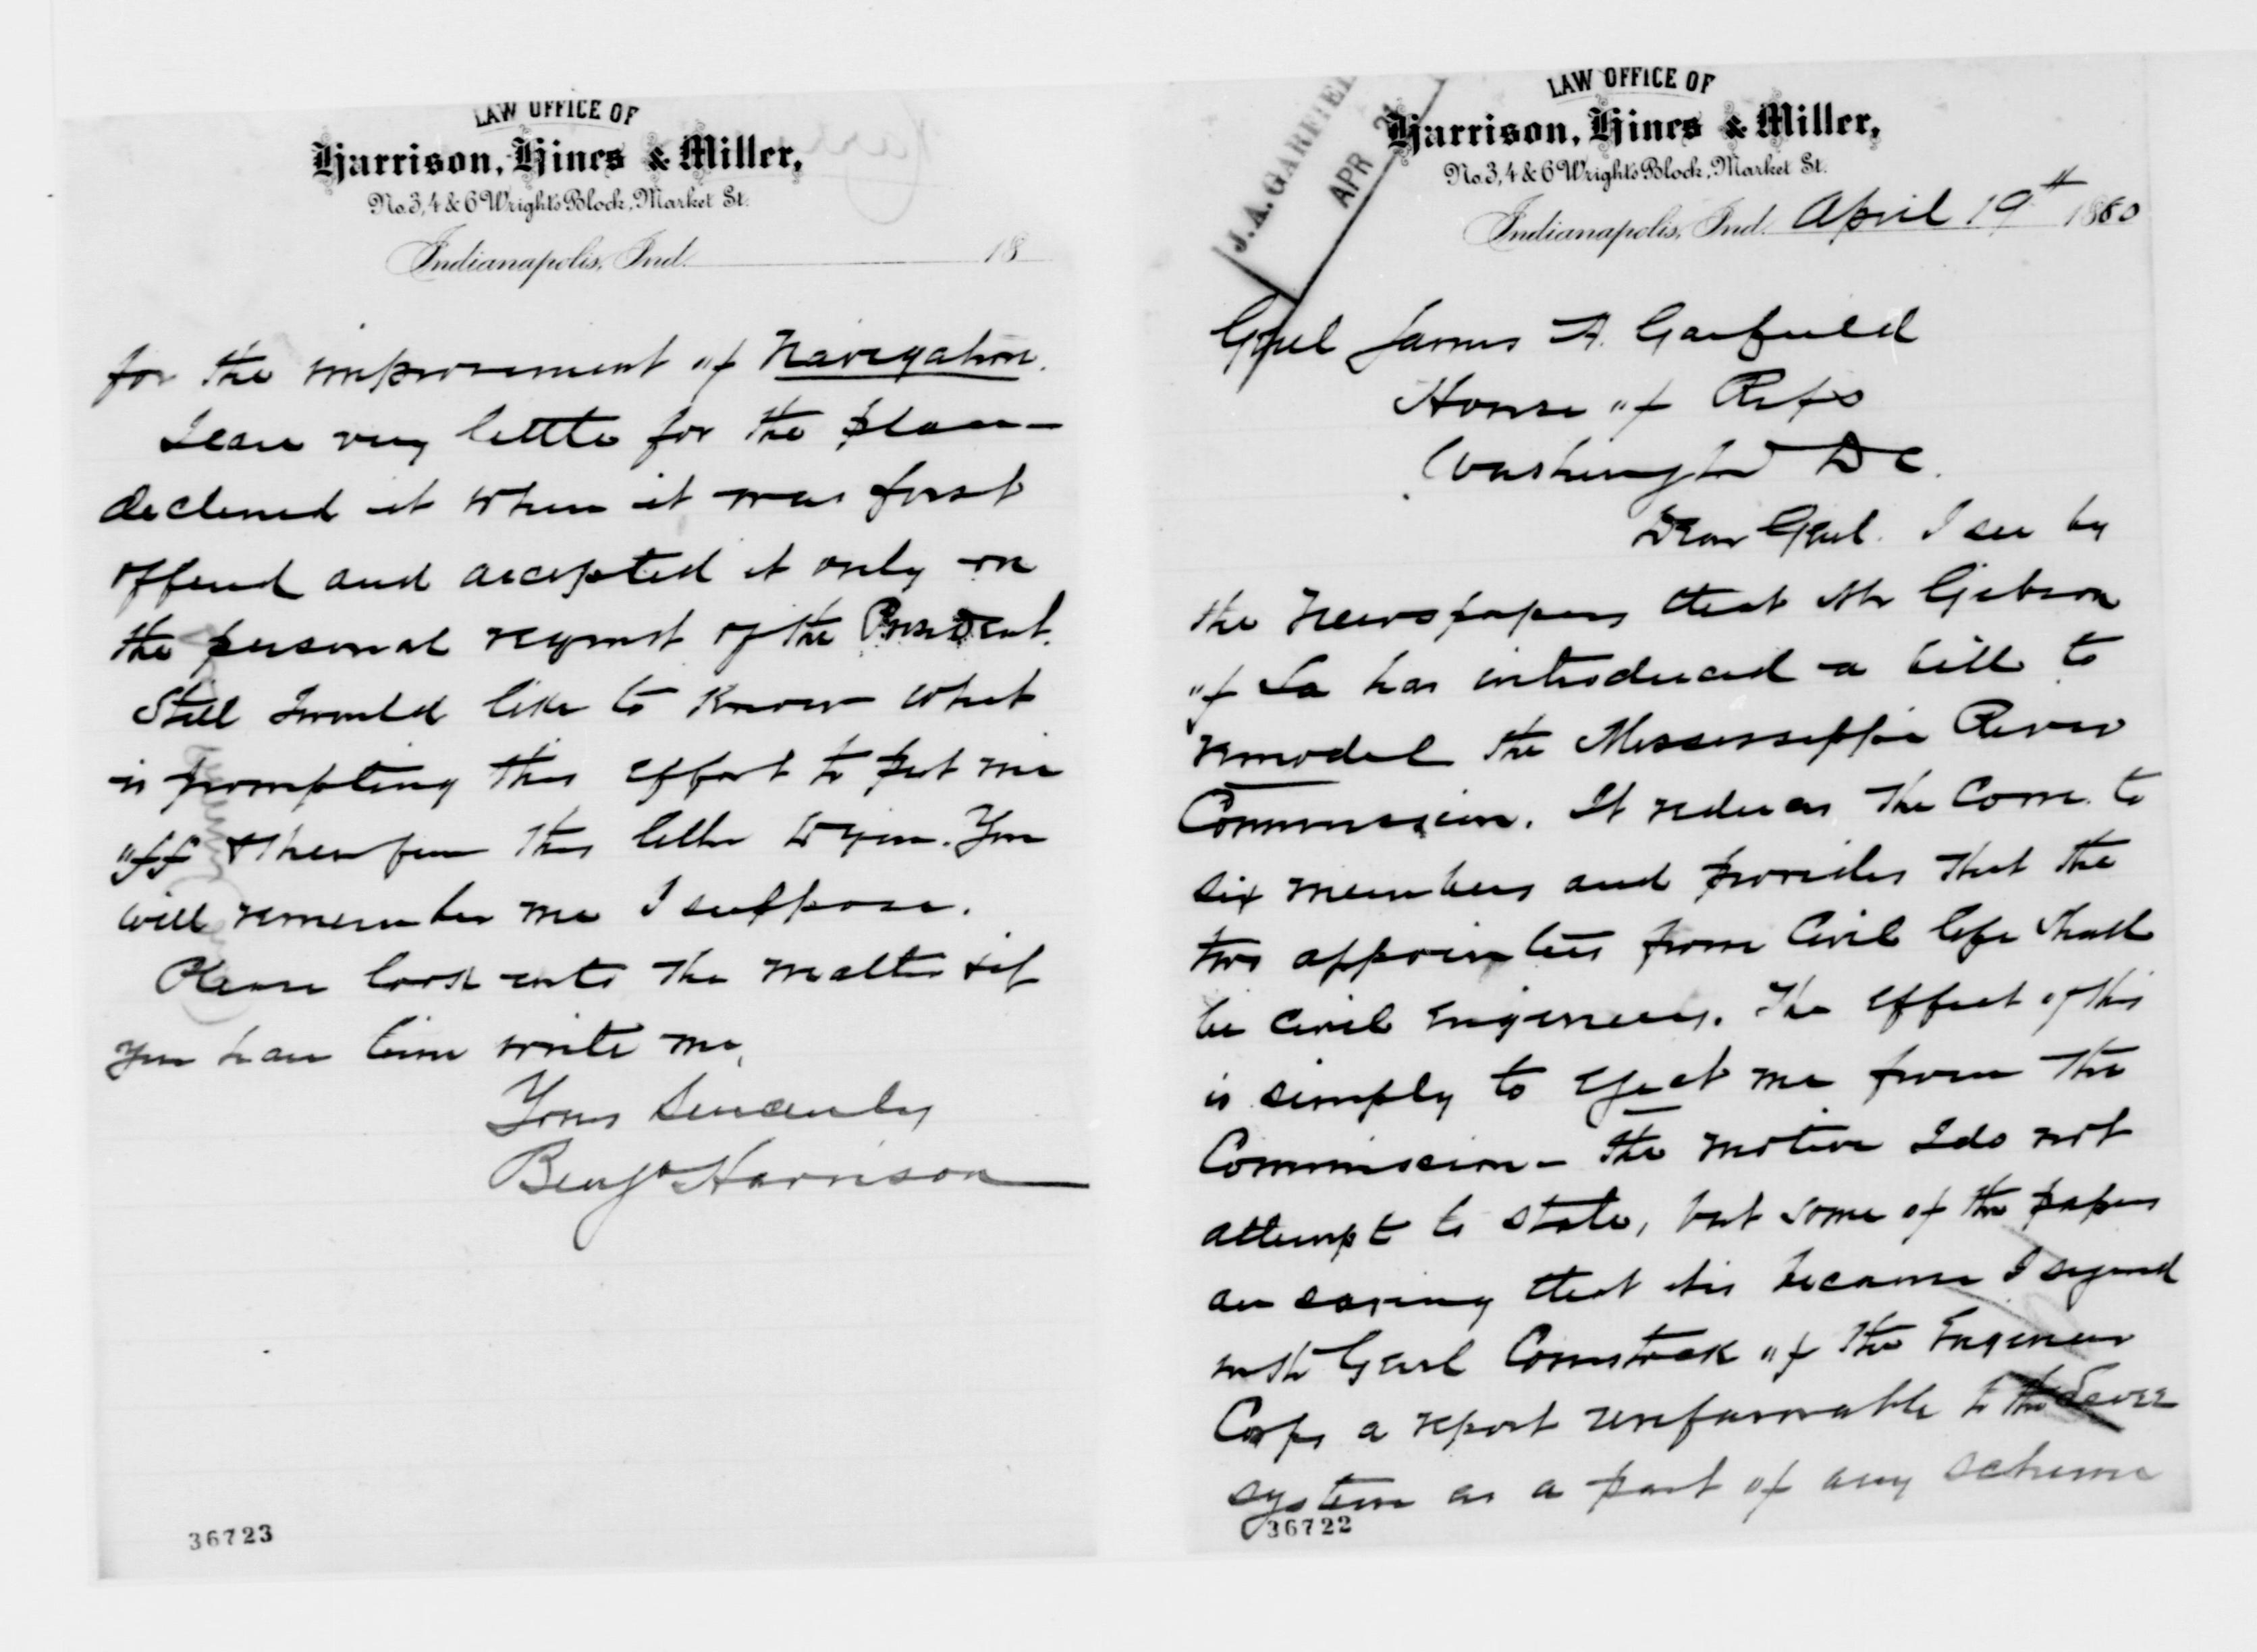 LAW OFFICE OF
Harrison, Hines & Miller,
No. 3, 4 & 6 Wright's Block, Market St.
Indianapolis, Ind. April 19th 1880
J. A. GARFIEL
APR 21
Genl James A. Garfield
House of Reps
Washington D C.
Dear Genl. I see by
the Newspapers that Mr Gibson
of La has introduced a bill to
remodel the Mississippi River
Commission. It reduces the Com. to
six members and provides that the
two appointees from Civil life shall
be civil Engineers. The effect of this
is simply to eject me from the
Commission – the motive I do not
attempt to state, but some of the papers
are saying that it is because I signed
with Genl Comstock of the Engineer
Corps a report unfavorable to the Levee
system as a part of any scheme
36722
LAW OFFICE OF
Harrison, Hines & Miller,
No. 3, 4 & 6 Wright's Block, Market St.
Indianapolis, Ind. 18
for the improvement of Navigation.
I care very little for the place –
declined it when it was first
offered and accepted it only on
the personal request of the President.
Still I would like to know what
is prompting this effort to put me
off & therefore this letter to you. You
will remember me I suppose.
Please look into the matter & if
you have time write me,
Yours Sincerely
Benja Harrison
36723